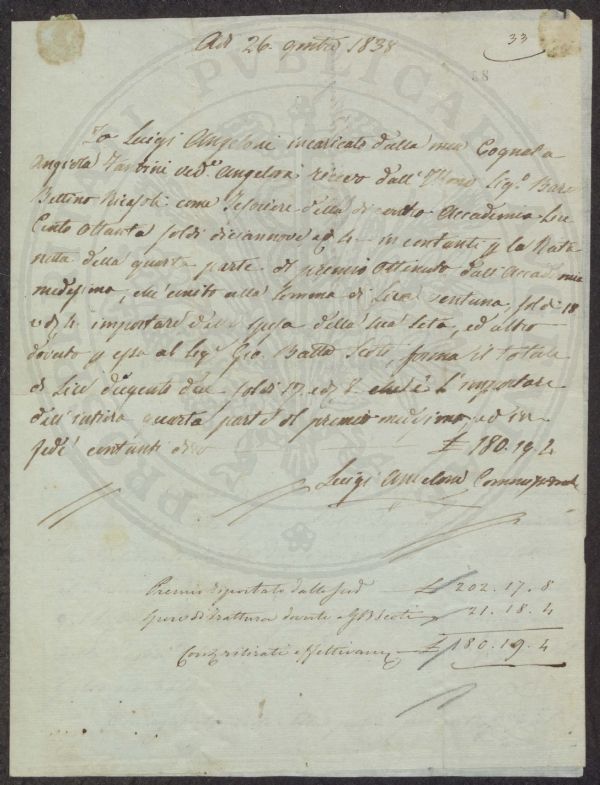 Ad 26. 9mbre 1838
33
88
Io Luigi Angeloni incaricato dalla mia Cognata
Angiola Ved.a Angeloni ricevo dall' Sig.r Baro
Bettino Ricasoli come Tesoriere della Accademia Lire
Cento Ottanta soldi diciannove e d 4 in contanti p la Rata
netta della quarta parte di premio Ottenuto dall'Accademia
medesima, che unito alla somma di Lire ventuna soldi 18
e d 4 importare della spesa della sua seta, ed altro
dovuto p essa al Sig.r Gio. Batta Scoti, forma il totale
di Lire dugento due soldi 17 e d 8 che è l'importare
dell'intiera quarta parte del premio medesimo, ed in
fede contanti dico £ 180.19.4
Luigi Angeloni
Premio riportato dalla sud £ 202.17.8
Spese di trattura dovute a GBScoti 21.18.4
£ 180.19.4
PVBLICAE